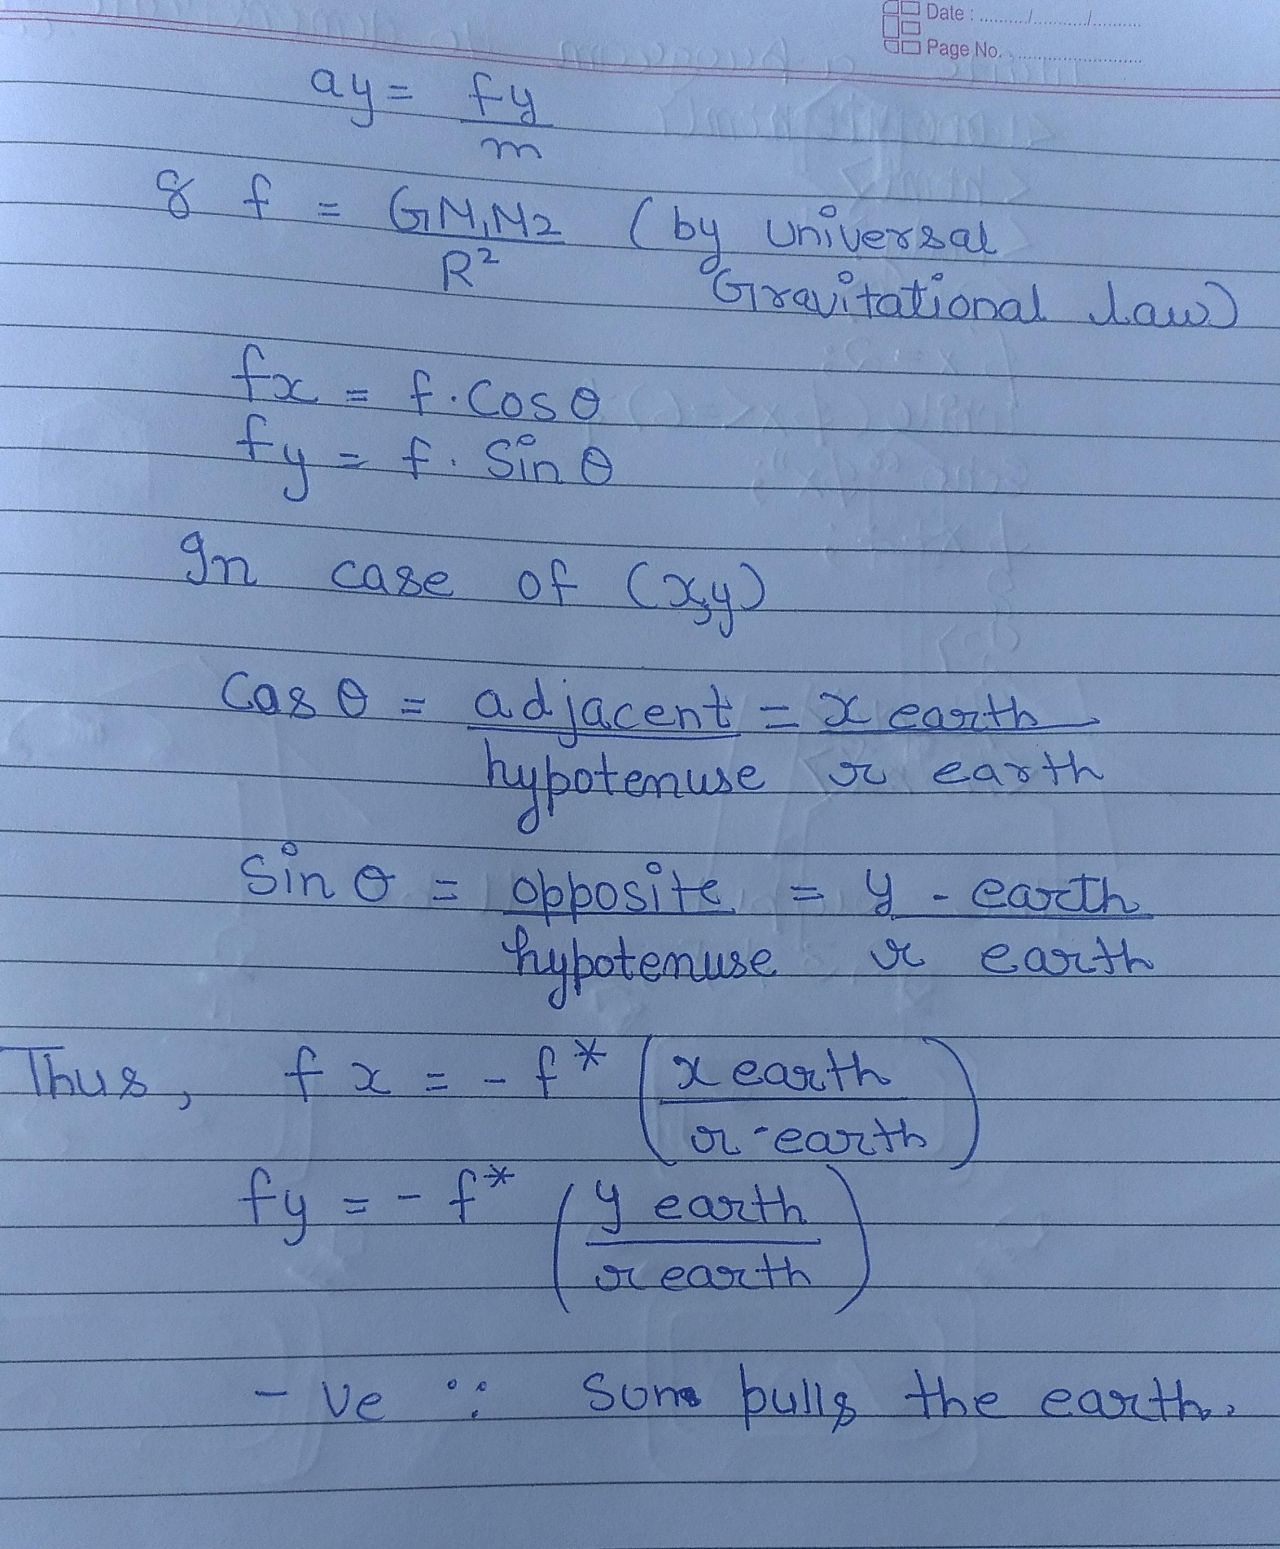 Date : ........../.........../...........
Page No. ..............................
ay = fy
m
& f = GM1M2 (by Universal
R² Gravitational law)
fx = f. Cos θ
fy = f. Sin θ
In case of (x,y)
Cos θ = adjacent = x earth
hypotenuse r earth
Sin θ = opposite = y - earth
hypotenuse r earth
Thus, fx = - f* (x earth
r-earth)
fy = - f* (y earth
r earth)
- ve ∵ Sun pulls the earth.